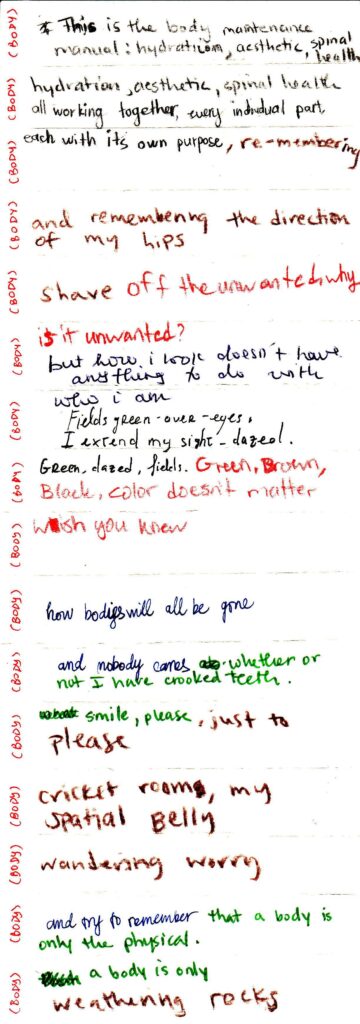 (BODY) * This is the body maintenance
manual: hydration, aesthetic, spinal health
(BODY) hydration, aesthetic, spinal health
all working together, every individual part,
(BODY) each with its own purpose, re-membering
(BODY) and remembering the direction
of my hips
(BODY) shave off the unwanted, why
(BODY) is it unwanted?
but how i look doesn't have
anything to do with
(BODY) who i am
Fields green-over-eyes,
I extend my sight-dazed.
(BODY) Green, dazed, fields. Green, Brown,
Black, color doesn't matter
(BODY) wish you knew
(BODY) how bodies will all be gone
(BODY) and nobody cares whether or
not I have crooked teeth.
(BODY) smile, please, just to
please
(BODY) cricket rooms, my
spatial Belly
(BODY) wandering worry
(BODY) and try to remember that a body is
only the physical.
(BODY) a body is only
weathering rocks